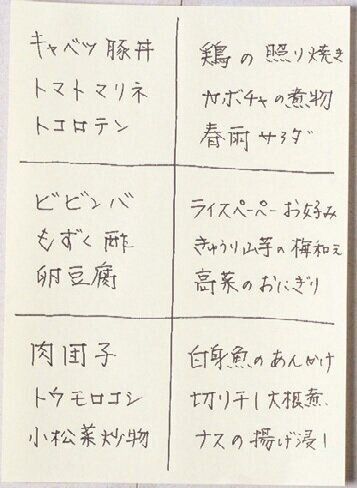 キャベツ豚丼
トマトマリネ
トコロテン
鶏の照り焼き
カボチャの煮物
春雨サラダ
ビビンバ
もずく酢
卵豆腐
ライスペーペーお好み
きゅうり山芋の梅和え
高菜のおにぎり
肉団子
トウモロコシ
小松菜炒物
白身魚のあんかけ
切り干し大根煮
ナスの揚げ浸し